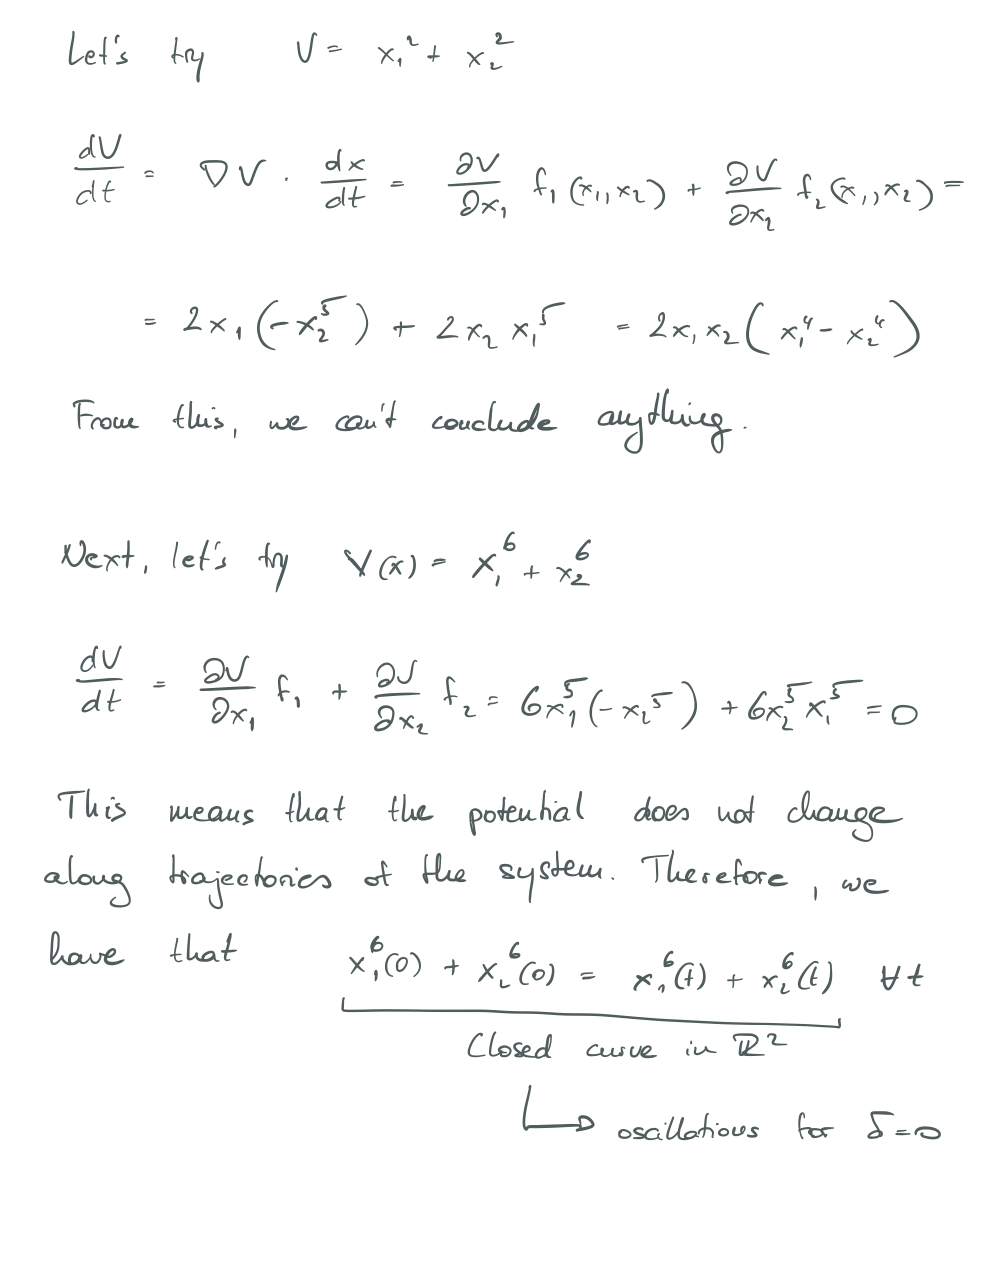 Let's try V = x₁² + x₂²
dV/dt = ∇V · dx/dt = ∂V/∂x₁ f₁(x₁,x₂) + ∂V/∂x₂ f₂(x₁,x₂) =
= 2x₁(-x₂⁵) + 2x₂ x₁⁵ = 2x₁x₂(x₁⁴ - x₂⁴)
From this, we can't conclude anything.
Next, let's try V(x) = x₁⁶ + x₂⁶
dV/dt = ∂V/∂x₁ f₁ + ∂V/∂x₂ f₂ = 6x₁⁵(-x₂⁵) + 6x₂⁵ x₁⁵ = 0
This means that the potential does not change
along trajectories of the system. Therefore, we
have that x₁⁶(0) + x₂⁶(0) = x₁⁶(t) + x₂⁶(t) ∀t
Closed curve in ℝ²
↳ oscillations for δ=0